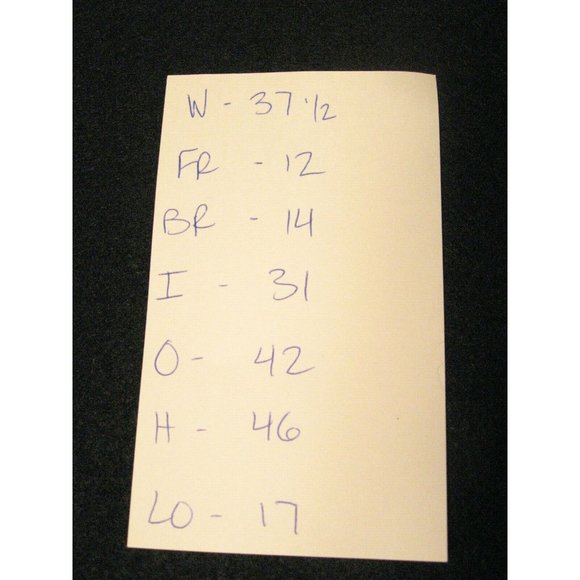 W - 37 1/2
FR - 12
BR - 14
I - 31
O - 42
H - 46
LO - 17